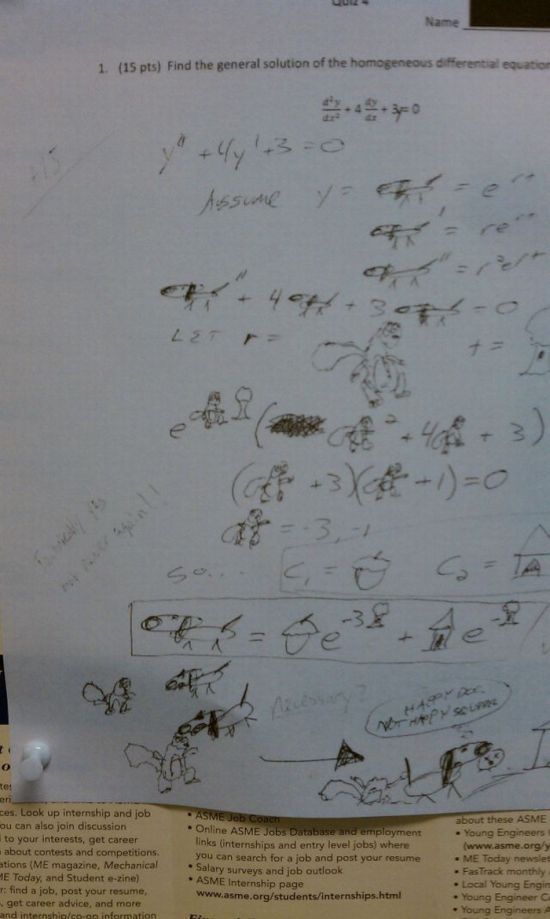 Quiz 4
Name
1. (15 pts) Find the general solution of the homogeneous differential equation
d²y/dx² + 4 dy/dx + 3y = 0
+15
y" + 4y' + 3 = 0
ASSUME y = = e^rt
' = re^rt
" = r²e^rt
" + 4 ' + 3 = 0
LET r = t =
e ( ² + 4 + 3)
( + 3)( + 1) = 0
= -3, -1
so... C₁ = C₂ =
= e^-3 + e^-
Necessary?
HAPPY DOG
NOT HAPPY SQUIRREL
ces. Look up internship and job
ou can also join discussion
l to your interests, get career
about contests and competitions.
ations (ME magazine, Mechanical
ME Today, and Student e-zine)
r: find a job, post your resume,
, get career advice, and more
and internship/co-op information
• ASME Job Coach
• Online ASME Jobs Database and employment
links (internships and entry level jobs) where
you can search for a job and post your resume
• Salary surveys and job outlook
• ASME Internship page
www.asme.org/students/internships.html
about these ASME
• Young Engineers
(www.asme.org/y
• ME Today newslet
• FasTrack monthly
• Local Young Engin
• Young Engineer C
• Young Engineers A